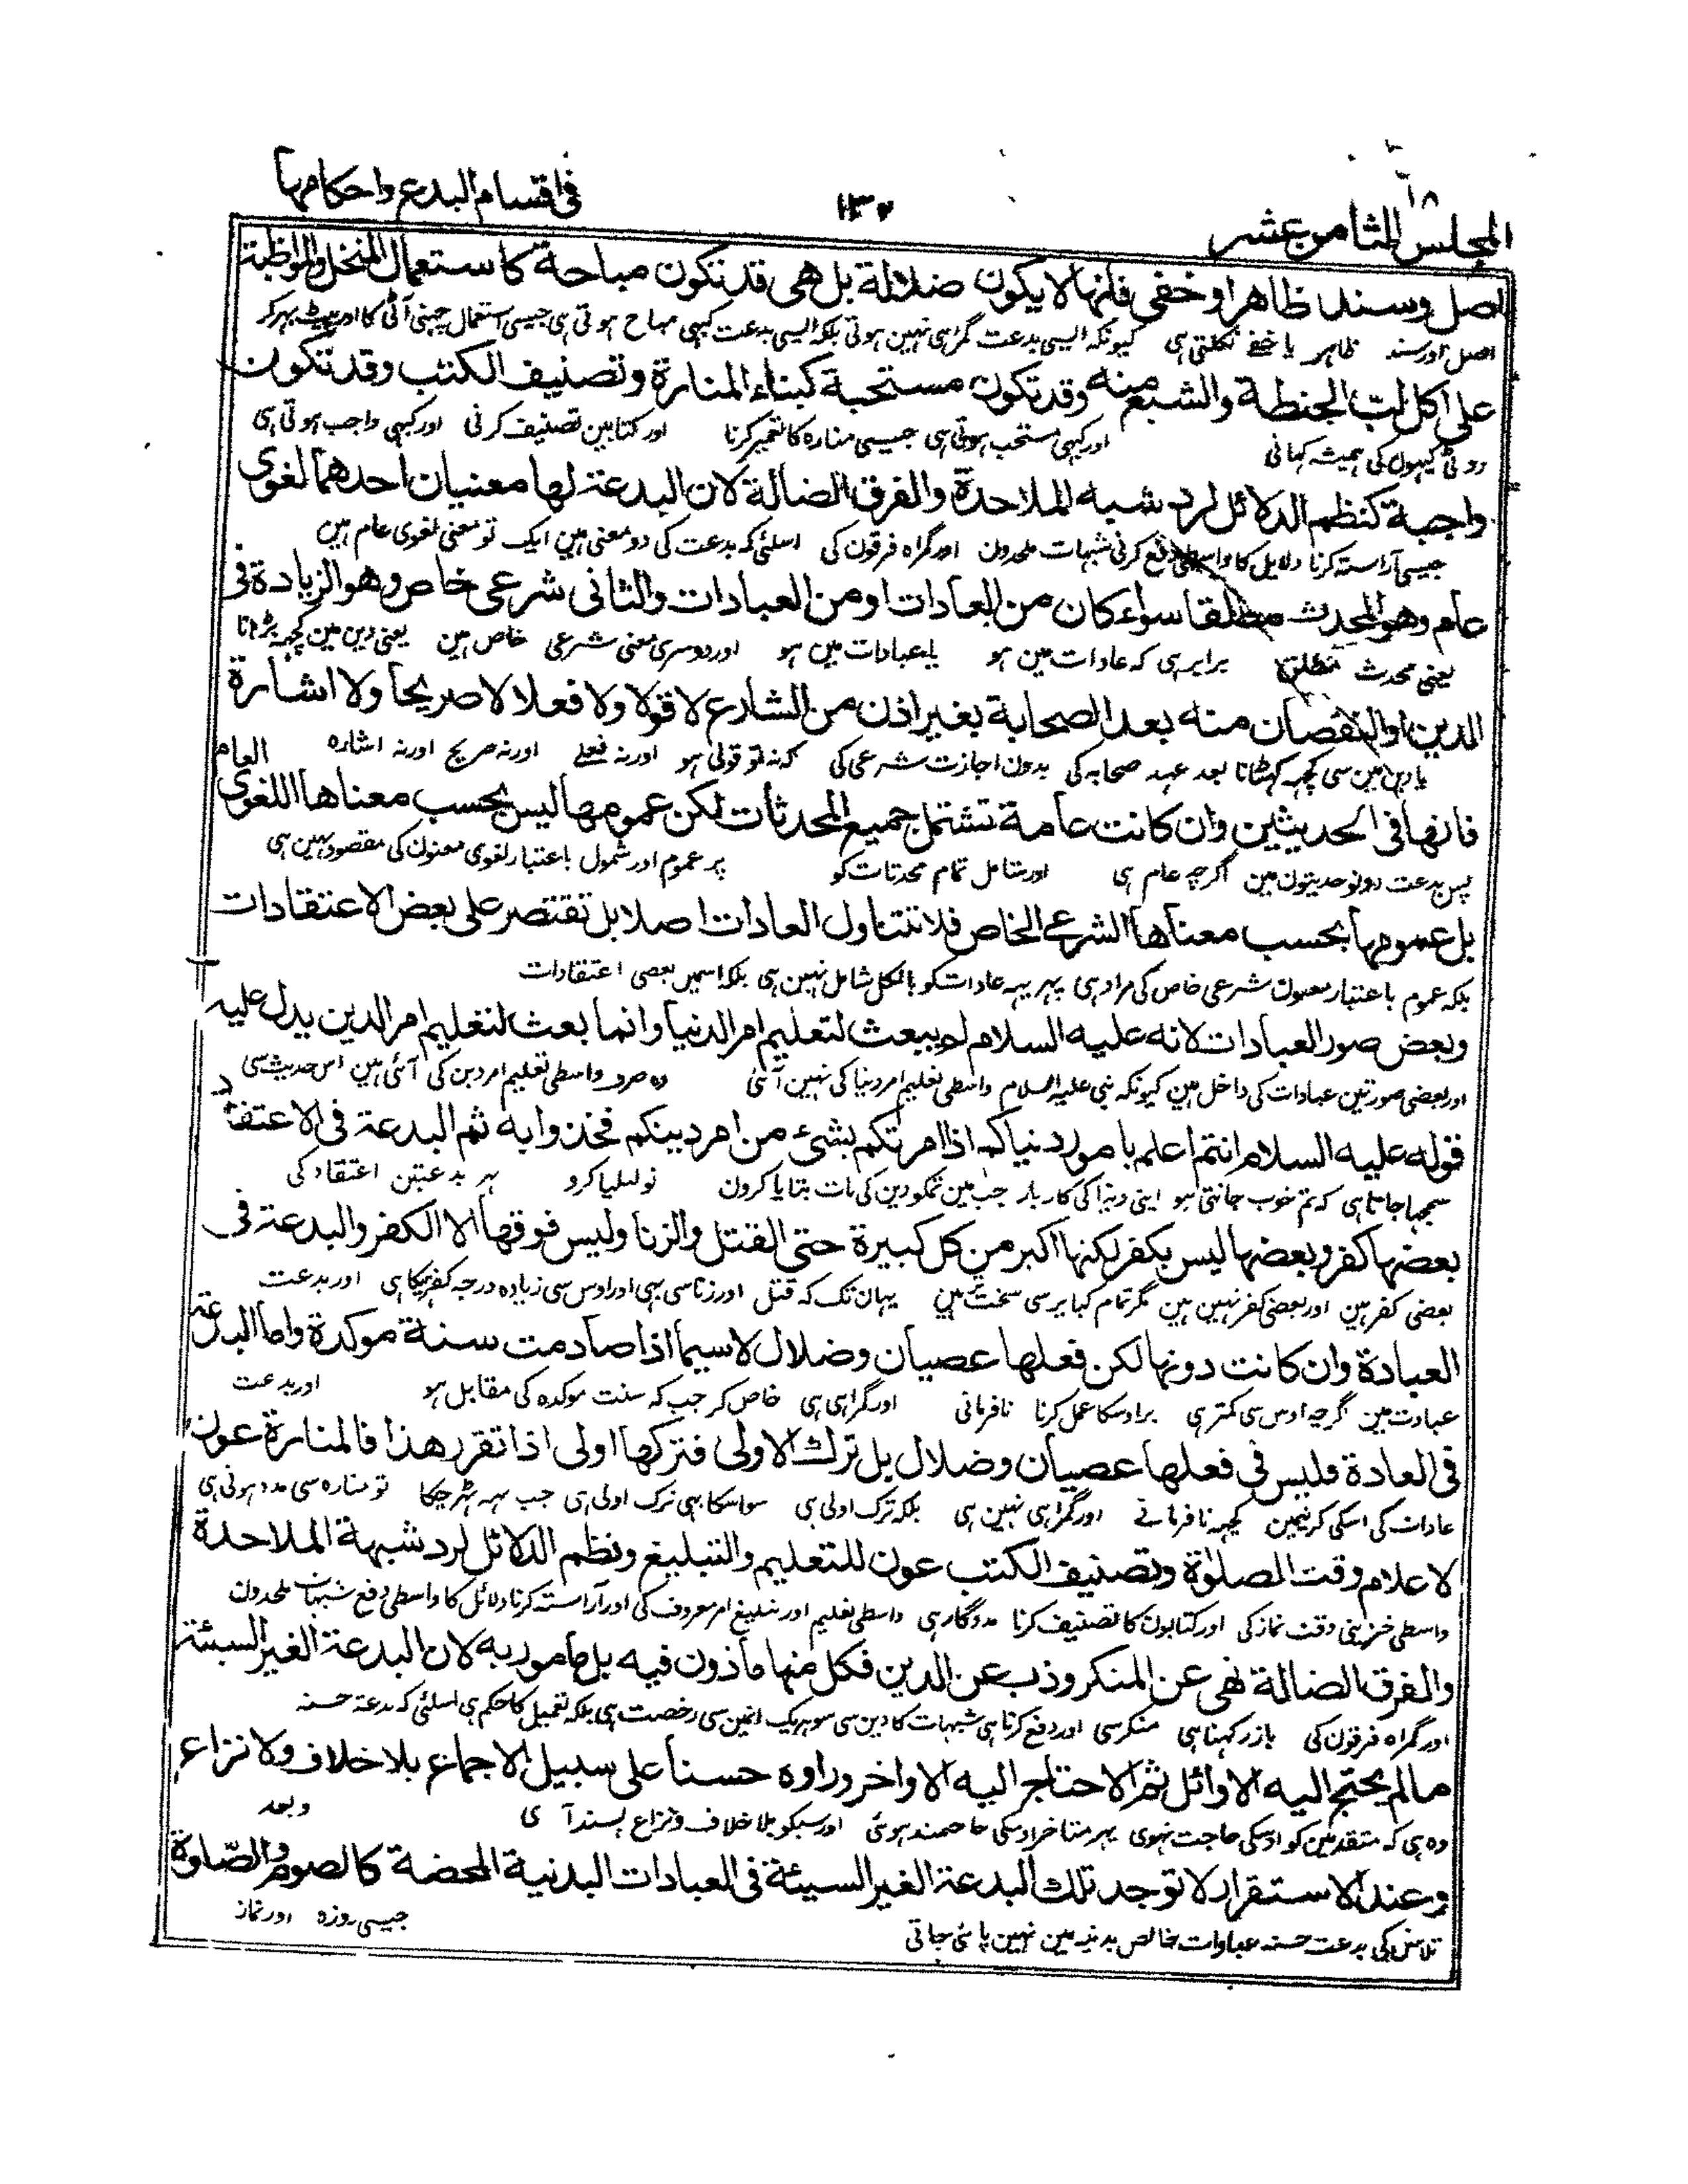 المجلس الثامن عشر
١٣٢
فی اقسام البدع واحکامها
اصل وسند ظاهر او خفی فانها لا یکون ضلالة بل هی قد تکون مباحة کاستعمال المنخل والمواظبة
اصل اور سند ظاہر یا خفے نکلتی ہی کیونکہ ایسی بدعت گمراہی نہین ہوتی بلکہ ایسی بدعت کبہی مباح ہوتی ہی جیسی استعمال چہنی آٹی کا اور پیٹ بہر کر
علی اکل لب الحنطة والشبع منه وقد تکون مستحبة کبناء المنارة وتصنیف الکتب وقد تکون
روٹی گیہون کی ہمیشہ کہانی اور کبہی مستحب ہوتی ہی جیسی منارہ کا تعمیر کرنا اور کتابین تصنیف کرنی اور کبہی واجب ہوتی ہی
واجبة کنظم الدلائل لرد شبه الملاحدة والفرق الضالة لان البدعة لها معنیان احدهما لغوی
جیسی آراستہ کرنا دلایل کا واسطی دفع کرنی شبہات ملحدون اور گمراہ فرقون کی اسلئی کہ بدعت کی دو معنی ہین ایک تو معنی لغوی عام ہین
عام وهو المحدث مطلقا سواء کان من العادات او من العبادات والثانی شرعی خاص وهو الزیادة فی
یعنی محدث مطلق برابر ہی کہ عادات مین ہو یا عبادات مین ہو اور دوسری معنی شرعی خاص ہین یعنی دین مین کچہہ بڑہانا
الدین او النقصان منه بعد الصحابة بغیر اذن من الشارع لا قولا ولا فعلا لا صریحا ولا اشارة
یا دین مین سی کچہہ گہٹانا بعد عہد صحابہ کی بدون اجازت شرعی کی کہ نہ تو قولی ہو اور نہ فعلے اور نہ صریح اور نہ اشارہ العام
فانها فی الحدیثین وان کانت عامة تشتمل جمیع المحدثات لکن عمومها لیس بحسب معناها اللغوی
پس بدعت دونو حدیثون مین اگرچہ عام ہی اور شامل تمام محدثات کو پر عموم اور شمول باعتبار لغوی معنون کی مقصود نہین ہی
بل عمومها بحسب معناها الشرعی الخاص فلا تتناول العادات اصلا بل تقتصر علی بعض الاعتقادات
بلکہ عموم باعتبار معنون شرعی خاص کی مراد ہی پہر یہہ عادات کو بالکل شامل نہین ہی بلکہ اسمین بعضی اعتقادات
وبعض صور العبادات لانه علیه السلام لم یبعث لتعلیم امر الدنیا وانما بعث لتعلیم امر الدین یدل علیه
اور بعضی صورتین عبادات کی داخل ہین کیونکہ نبی علیہ السلام واسطی تعلیم امر دنیا کی نہین آئی وہ صرف واسطی تعلیم امر دین کی آئی ہین اس حدیث سی
قوله علیه السلام انتم اعلم بامور دنیاکم اذا امرتکم بشیٔ من امر دینکم فخذوا به ثم البدعة فی الاعتقاد
سمجہا جاتا ہی کہ تم خوب جانتی ہو اپنی دنیا کی کار بار جب مین تمکو دین کی بات بتایا کرون تو لیلیا کرو پہر بدعتین اعتقاد کی
بعضها کفر وبعضها لیس بکفر لکنها اکبر من کل کبیرة حتی القتل والزنا ولیس فوقها الا الکفر والبدعة فی
بعضی کفر ہین اور بعضی کفر نہین ہین مگر تمام کبایر سی سخت ہین یہان تک کہ قتل اور زنا سی بہی اور اوس سی زیادہ درجہ کفر ہیکا ہی اور بدعت
العبادة وان کانت دونها لکن فعلها عصیان وضلال لا سیما اذا صادمت سنة موکدة واما البدعة
عبادت مین گرچہ اوس سی کمتر ہی پر اوسکا عمل کرنا نافرمانی اور گمراہی ہی خاص کر جب کہ سنت موکدہ کی مقابل ہو اور بدعت
فی العادة فلیس فی فعلها عصیان وضلال بل ترک الاولی فترکها اولی اذا تقرر هذا فالمنارة عون
عادات کی اسکی کرنیمین کچہہ نافرمانے اور گمراہی نہین ہی بلکہ ترک اولی ہی سو اسکا بہی ترک اولی ہی جب یہہ ٹہر چکا تو منارہ سی مدد ہوتی ہی
لاعلام وقت الصلوٰة وتصنیف الکتب عون للتعلیم والتبلیغ ونظم الدلائل لرد شبهة الملاحدة
واسطی خبر دینی وقت نماز کی اور کتابون کا تصنیف کرنا مددگار ہی واسطی تعلیم اور تبلیغ امر معروف کی اور آراستہ کرنا دلائل کا واسطی دفع شبہات ملحدون
والفرق الضالة نهی عن المنکر وذب عن الدین فکل منها ماذون فیه بل مامور به لان البدعة الغیر السیئة
اور گمراہ فرقون کی باز رکہنا ہی منکر سی اور دفع کرنا ہی شبہات کا دین سی سو ہر یک انمین سی رخصت ہی بلکہ تعمیل کا حکم ہی اسلئی کہ بدعۃ حسنہ
ما لم یحتج الیه الاوائل ثم الاحتاج الیه الاواخر وراوه حسنا علی سبیل الاجماع بلا خلاف ولا نزاع
وہ ہی کہ متقدمین کو اوسکی حاجت نہوی پہر متاخر اوسکی حاجتمند ہوئی اور سبکو بلا خلاف و نزاع پسند آ ی وبعد
وعند الاستقرار لا توجد تلک البدعة الغیر السیئة فی العبادات البدنیة المحضة کالصوم والصّلوة
تلاش کی بدعت حسنہ عبادات خالص بدنیہ مین نہین پائی جاتی جیسی روزہ اور نماز